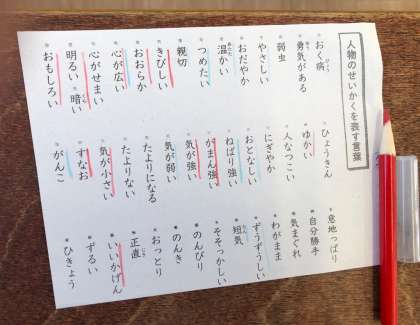 人物のせいかくを表す言葉
おく病
勇気がある
弱虫
やさしい
おだやか
温かい
つめたい
親切
きびしい
おおらか
心が広い
心がせまい
明るい 暗い
おもしろい
ひょうきん
ゆかい
人なつこい
にぎやか
おとなしい
ねばり強い
がまん強い
気が強い
気が弱い
たよりになる
たよりない
気が小さい
すなお
がんこ
意地っぱり
自分勝手
気まぐれ
わがまま
ずうずうしい
短気
そそっかしい
のんびり
のんき
おっとり
正直
いいかげん
ずるい
ひきょう